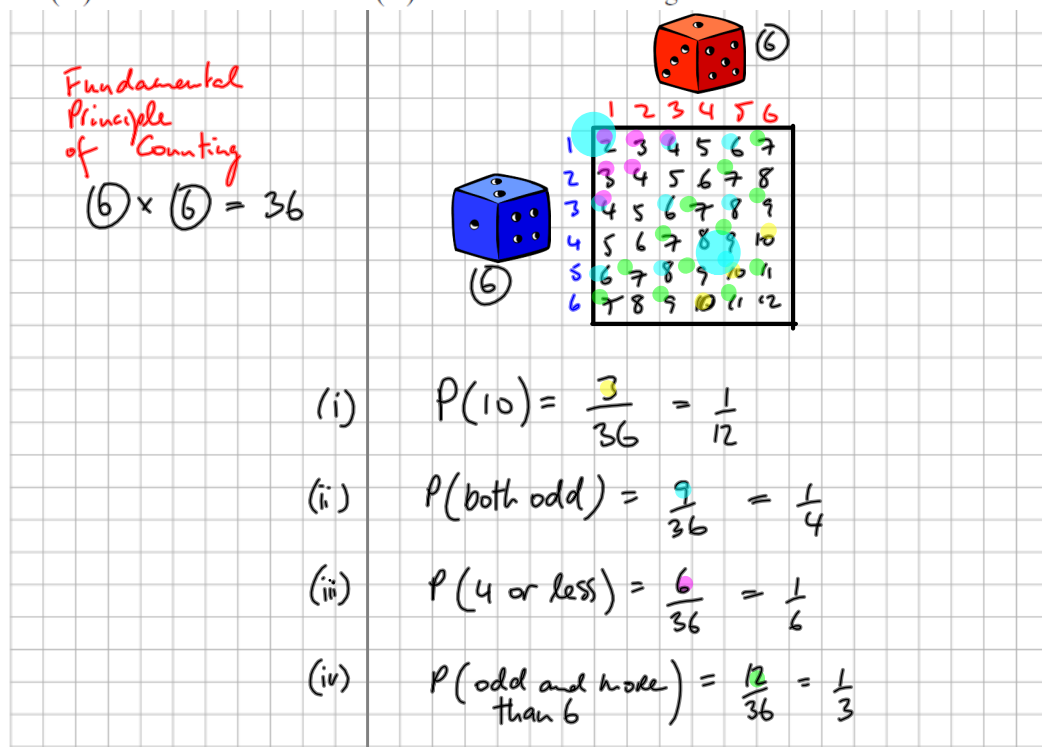 ⑥
Fundamental
Principle
of Counting
⑥ × ⑥ = 36
1 2 3 4 5 6
1 2 3 4 5 6 7
2 3 4 5 6 7 8
3 4 5 6 7 8 9
4 5 6 7 8 9 10
5 6 7 8 9 10 11
6 7 8 9 10 11 12
⑥
(i) P(10) = 3/36 = 1/12
(ii) P(both odd) = 9/36 = 1/4
(iii) P(4 or less) = 6/36 = 1/6
(iv) P(odd and more than 6) = 12/36 = 1/3